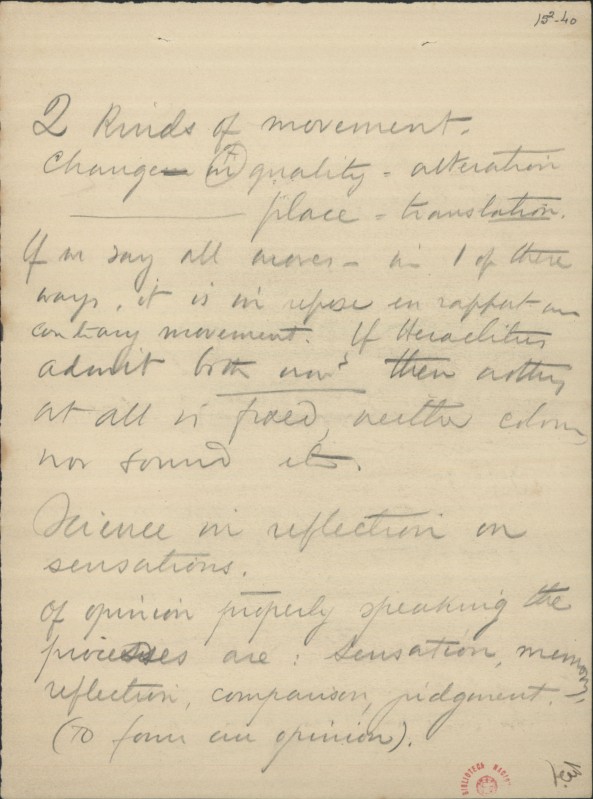 15²-40
2 Kinds of movement.
Change in quality - alteration
place - translation.
If we say all moves - in 1 of these
ways, it is in repose en rapport au
contrary movement. If Heraclitus
admit both movts then nothing
at all is fixed, neither colour,
nor sound etc.
Science in reflection on
sensations.
Of opinion properly speaking the
processes are: sensation, memory,
reflection, comparison, judgment.
(To form an opinion).